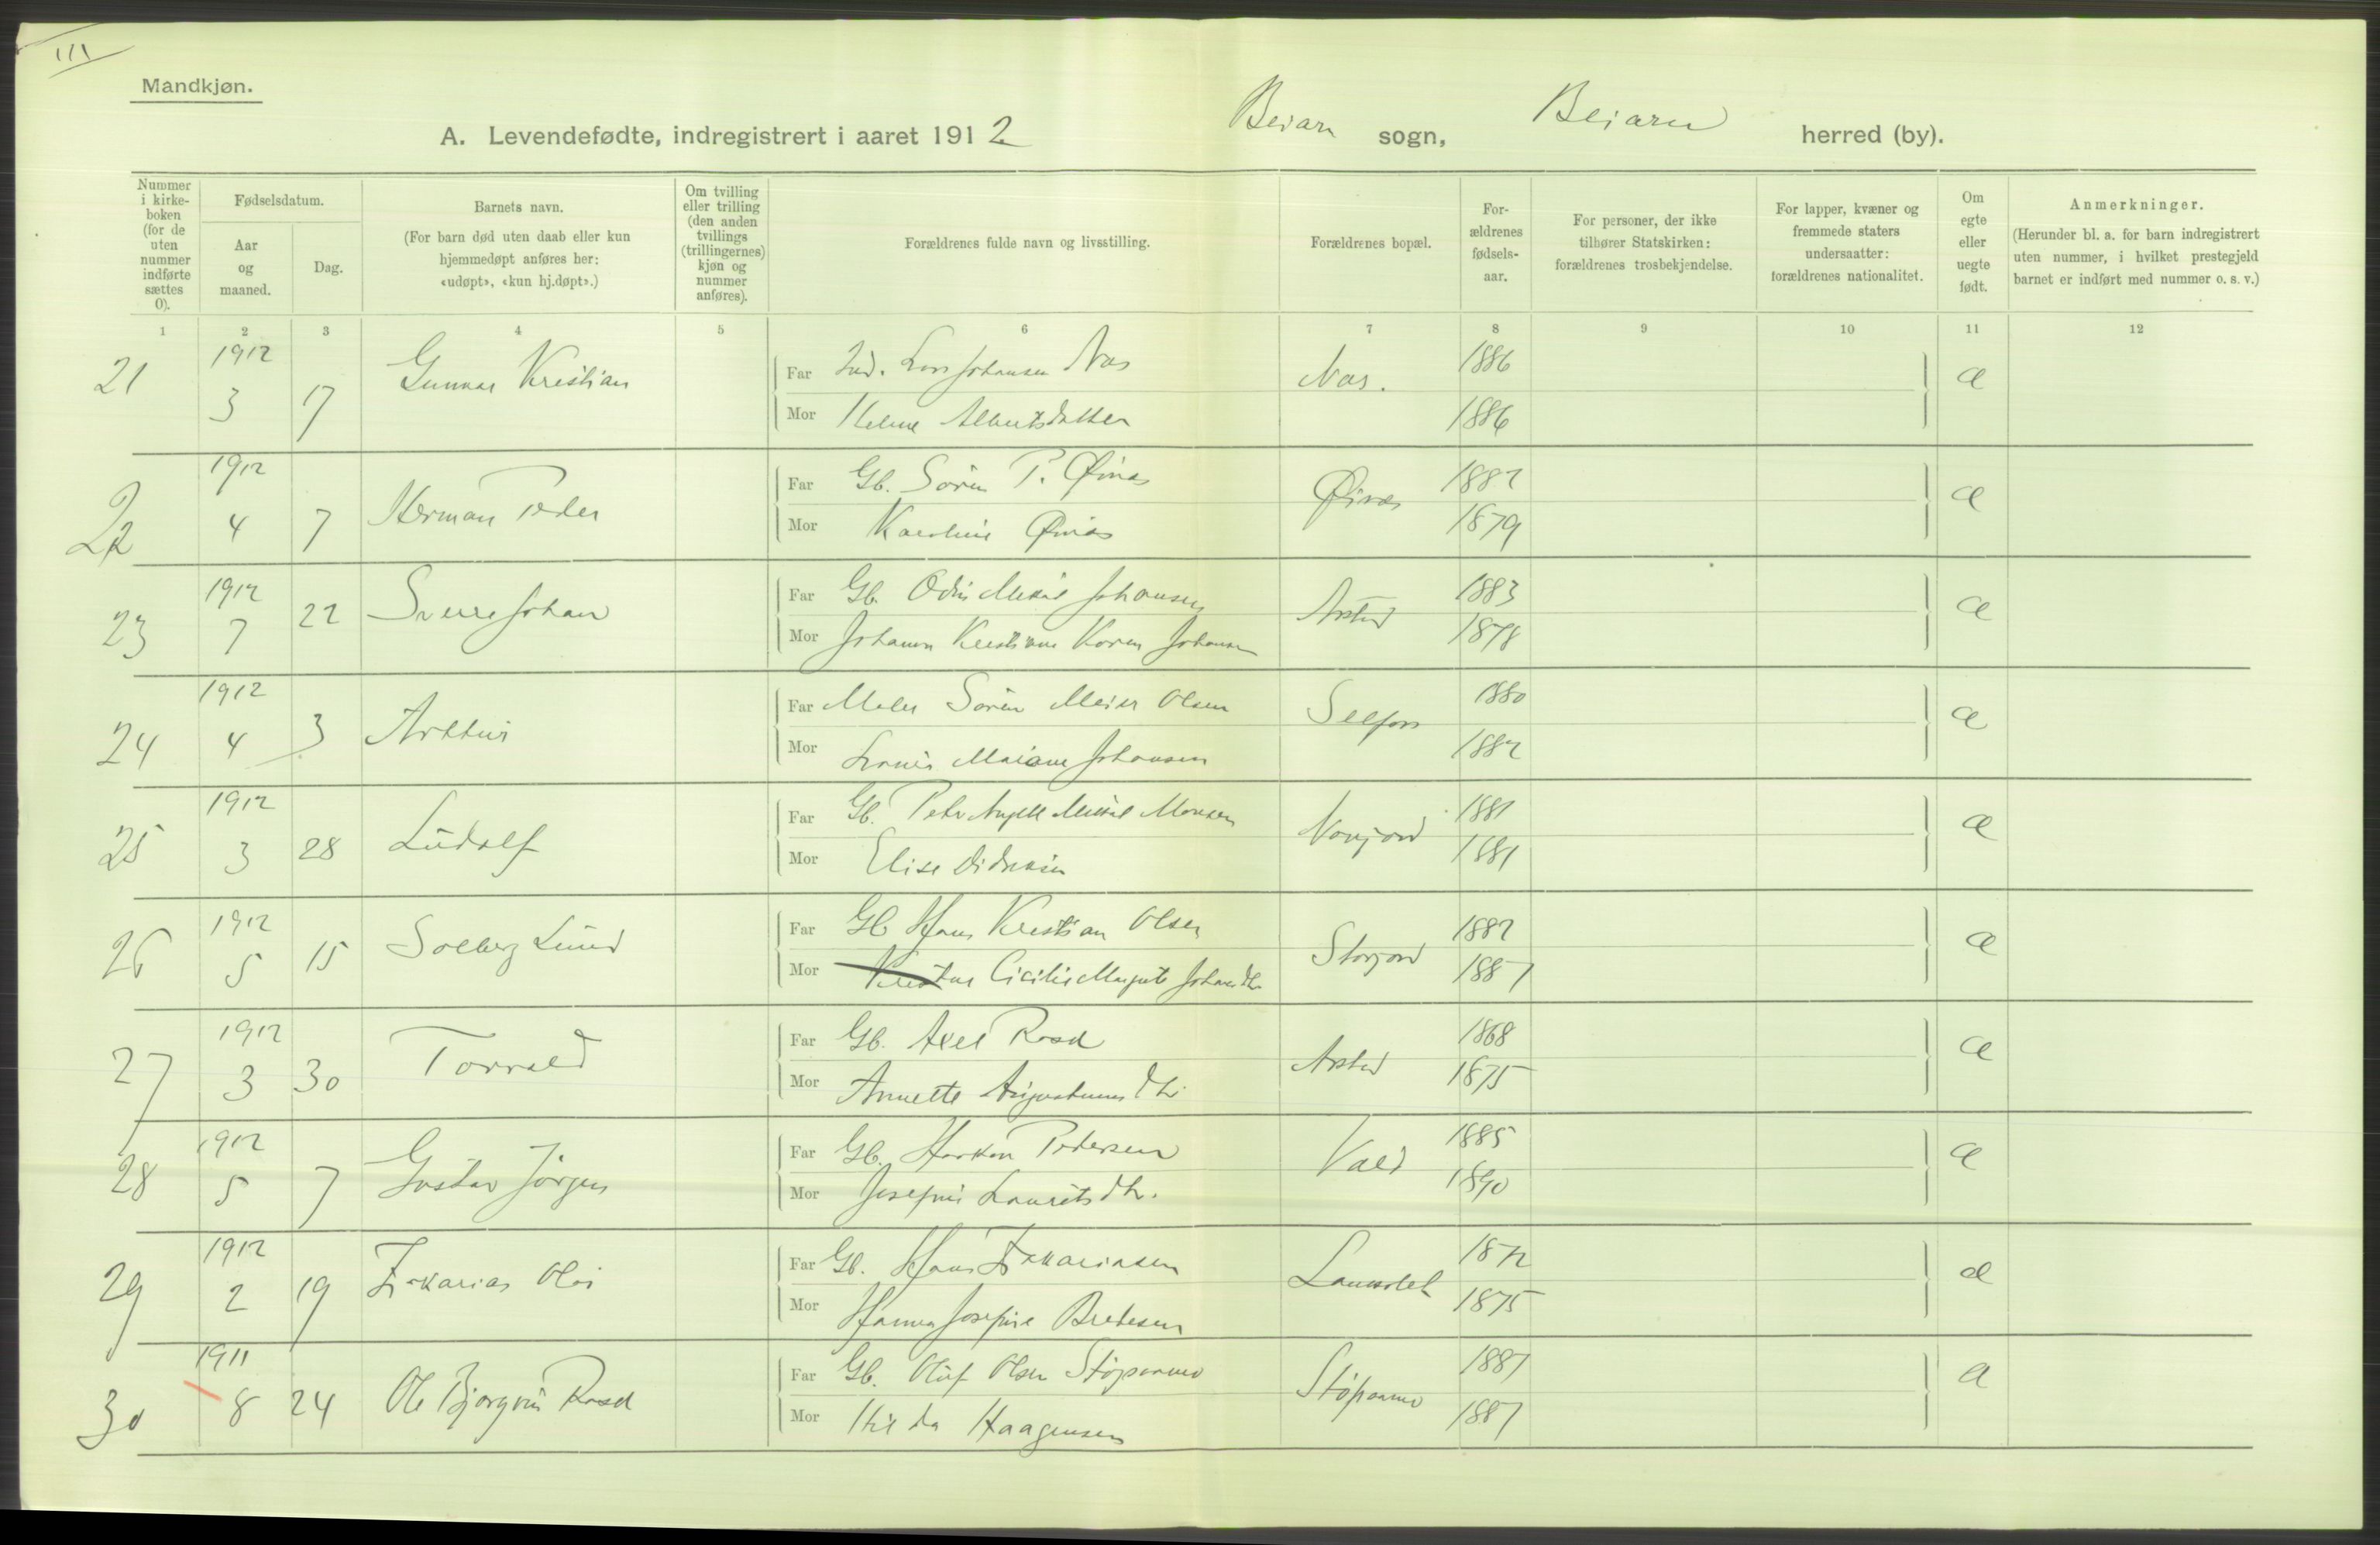 111
Mandkjøn.
A. Levendefødte, indregistrert i aaret 1912 Beiarn sogn, Beiarn herred (by).
Nummer i kirke-boken (for de uten nummer indførte sættes 0).
Fødselsdatum.
Aar og maaned.
Dag.
Barnets navn.
(For barn død uten daab eller kun hjemmedøpt anføres her: «udøpt», «kun hj.døpt».)
Om tvilling eller trilling (den anden tvillings (trillingernes) kjøn og nummer anføres).
Forældrenes fulde navn og livsstilling.
Forældrenes bopæl.
For-ældrenes fødsels-aar.
For personer, der ikke tilhører Statskirken: forældrenes trosbekjendelse.
For lapper, kvæner og fremmede staters undersaatter: forældrenes nationalitet.
Om egte eller uegte født.
Anmerkninger.
(Herunder bl. a. for barn indregistrert uten nummer, i hvilket prestegjeld barnet er indført med nummer o. s. v.)
1 2 3 4 5 6 7 8 9 10 11 12
21 1912 3 17 Gunnar Kristian
Far Johansen Nas Nas. 1886 æ
Mor Albertsdatter 1886
22 1912 4 7 Herman Peder
Far Gb. Søren P. Øinæs Øinæs 1882 æ
Mor Karoline Øinæs 1879
23 1912 7 22 Sverre Johan
Far Gb. Odin Mikal Johansen Arstad 1883 æ
Mor Johanna Kristiane Karen Johansen 1878
24 1912 4 3 Arthur
Far Maler Søren Meier Olsen Selfors 1880 æ
Mor Mariane Johansen 1882
25 1912 3 28 Ludolf
Far Gb. Peter Mikal Monsen 1881 æ
Mor Elise Didriksen 1881
26 1912 5 15 Solberg Lund
Far Gb Hans Kristian Olsen Storjord 1882 æ
Mor Cicilie Margrete 1887
27 1912 3 30 Torvald
Far Gb. Axel Rosd Arstad 1868 æ
Mor Annette 1875
28 1912 5 7 Gustav Jörgen
Far Gb. Haakon Pedersen Vold 1885 æ
Mor Josefine Lauritsdtr. 1890
29 1912 2 19 Zakarias Olai
Far Gb. Hans Zakariasen 1872 æ
Mor Hanna Josefine Bredesen 1875
30 1911 8 24 Ole Bjorgvin Rosd
Far Gb. Oluf Olsen Støpaamo Støpaamo 1887 æ
Mor Hilda Haagensen 1887